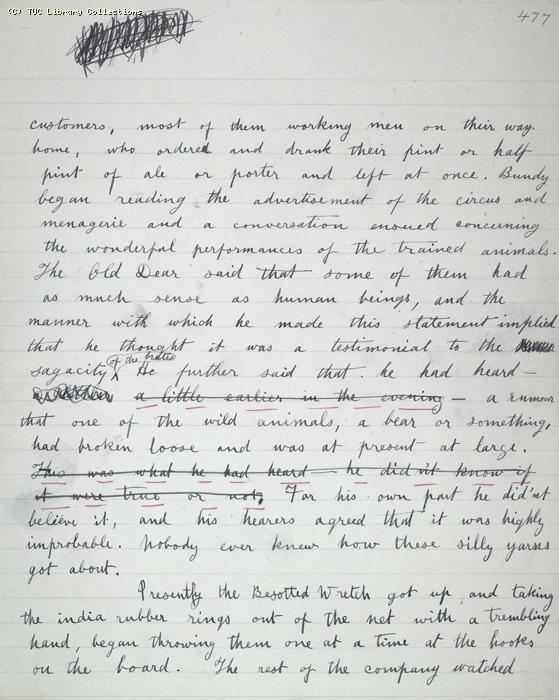 (C) TUC Library Collections
477
customers, most of them working men on their way
home, who ordered and drank their pint or half
pint of ale or porter and left at once. Bundy
began reading the advertisement of the circus and
menagerie and a conversation ensued concerning
the wonderful performances of the trained animals.
The Old Dear said that some of them had
as much sense as human beings, and the
manner with which he made this statement implied
that he thought it was a testimonial to the
of the brutes
sagacity He further said that he had heard –
a little earlier in the evening – a rumour
that one of the wild animals, a bear or something,
had broken loose and was at present at large.
This was what he had heard – he didn't know if
it were true or not. For his own part he did'nt
believe it, and his hearers agreed that it was highly
improbable. Nobody ever knew how these silly yarns
got about.
Presently the Besotted Wretch got up and taking
the india rubber rings out of the net with a trembling
hand, began throwing them one at a time at the hooks
on the board. The rest of the company watched